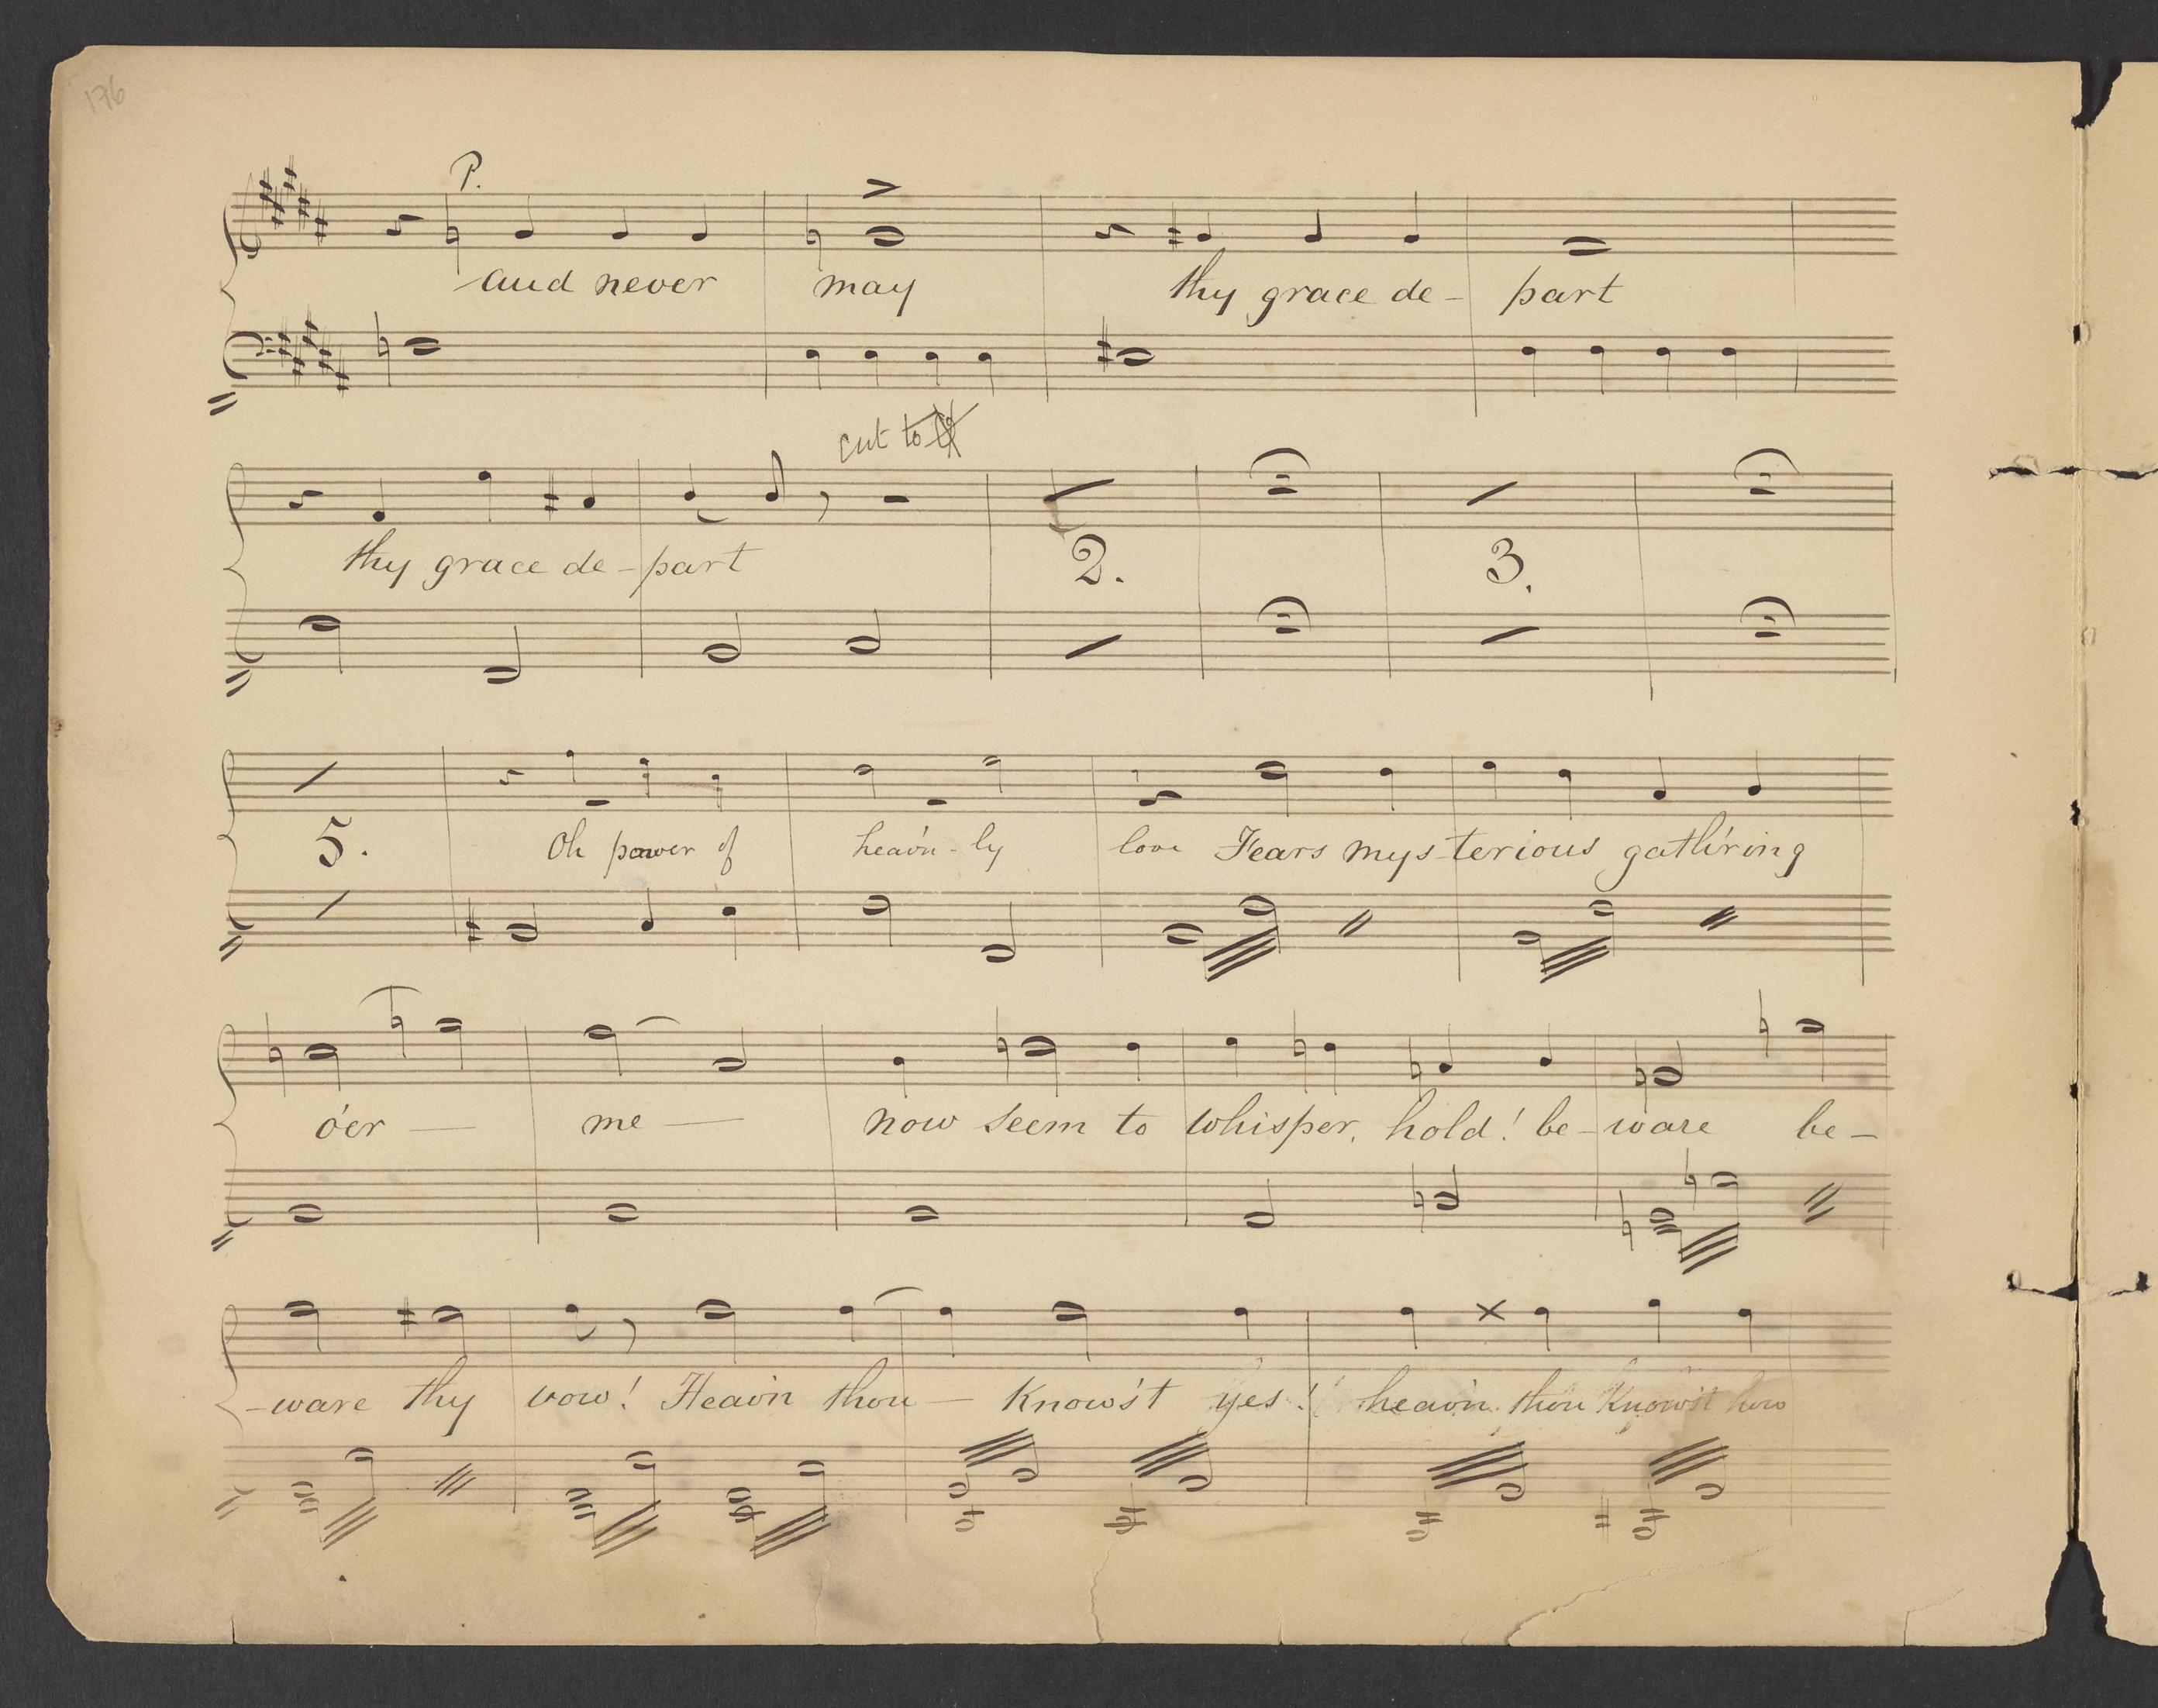 176
P.
and never may thy grace de- part
cut to
thy grace de-part 2. 3.
5. Oh power of heav'n-ly love Fears mys-terious gath'ring
o'er — me — now seem to whisper, hold! be-ware be-
-ware thy vow! Heav'n thou — Know'st yes! heav'n thou Know'st how